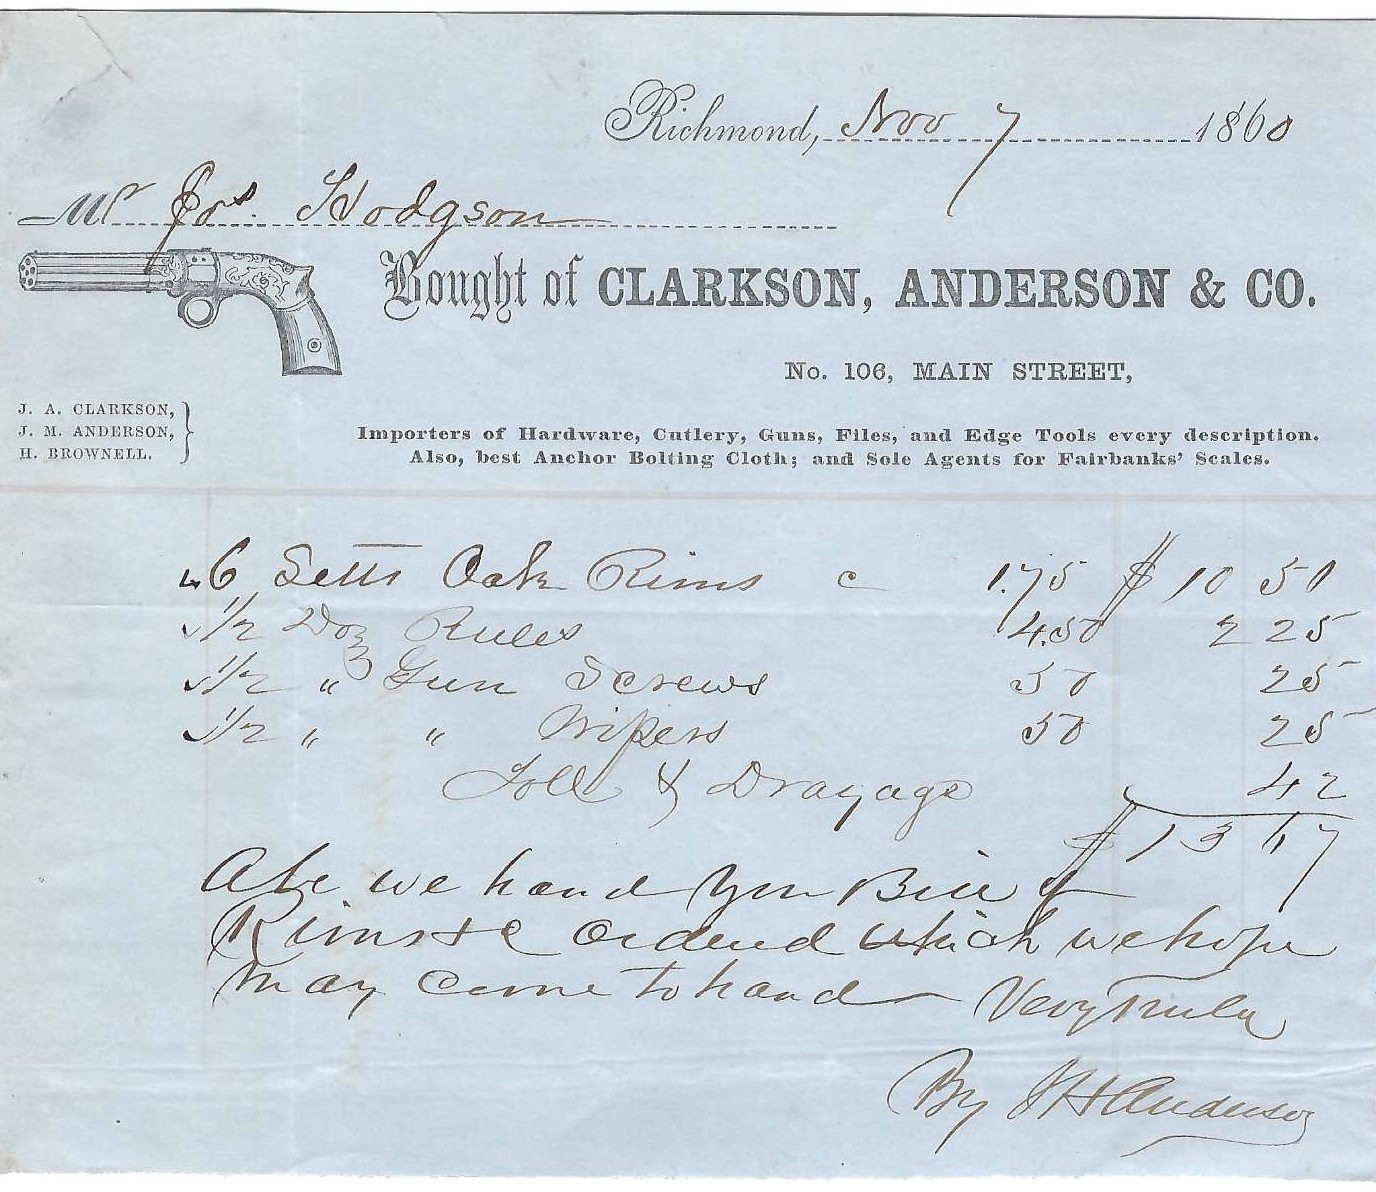 Richmond, Nov 7 1860
Mr Jos. Hodgson
Bought of CLARKSON, ANDERSON & CO.
No. 106, MAIN STREET,
J. A. CLARKSON,
J. M. ANDERSON,
H. BROWNELL.
Importers of Hardware, Cutlery, Guns, Files, and Edge Tools every description.
Also, best Anchor Bolting Cloth; and Sole Agents for Fairbanks' Scales.
6 Setts Oak Rims c 1.75 $ 10 50
1/2 Doz Rules 4.50 2 25
1/2 " Gun Screws 50 25
1/2 " " Wipers 50 25
Toll & Drayage 42
$ 13 67
we hand you Bill of
Rims &c ordered which we hope
may come to hand Very Truly
By Anderson